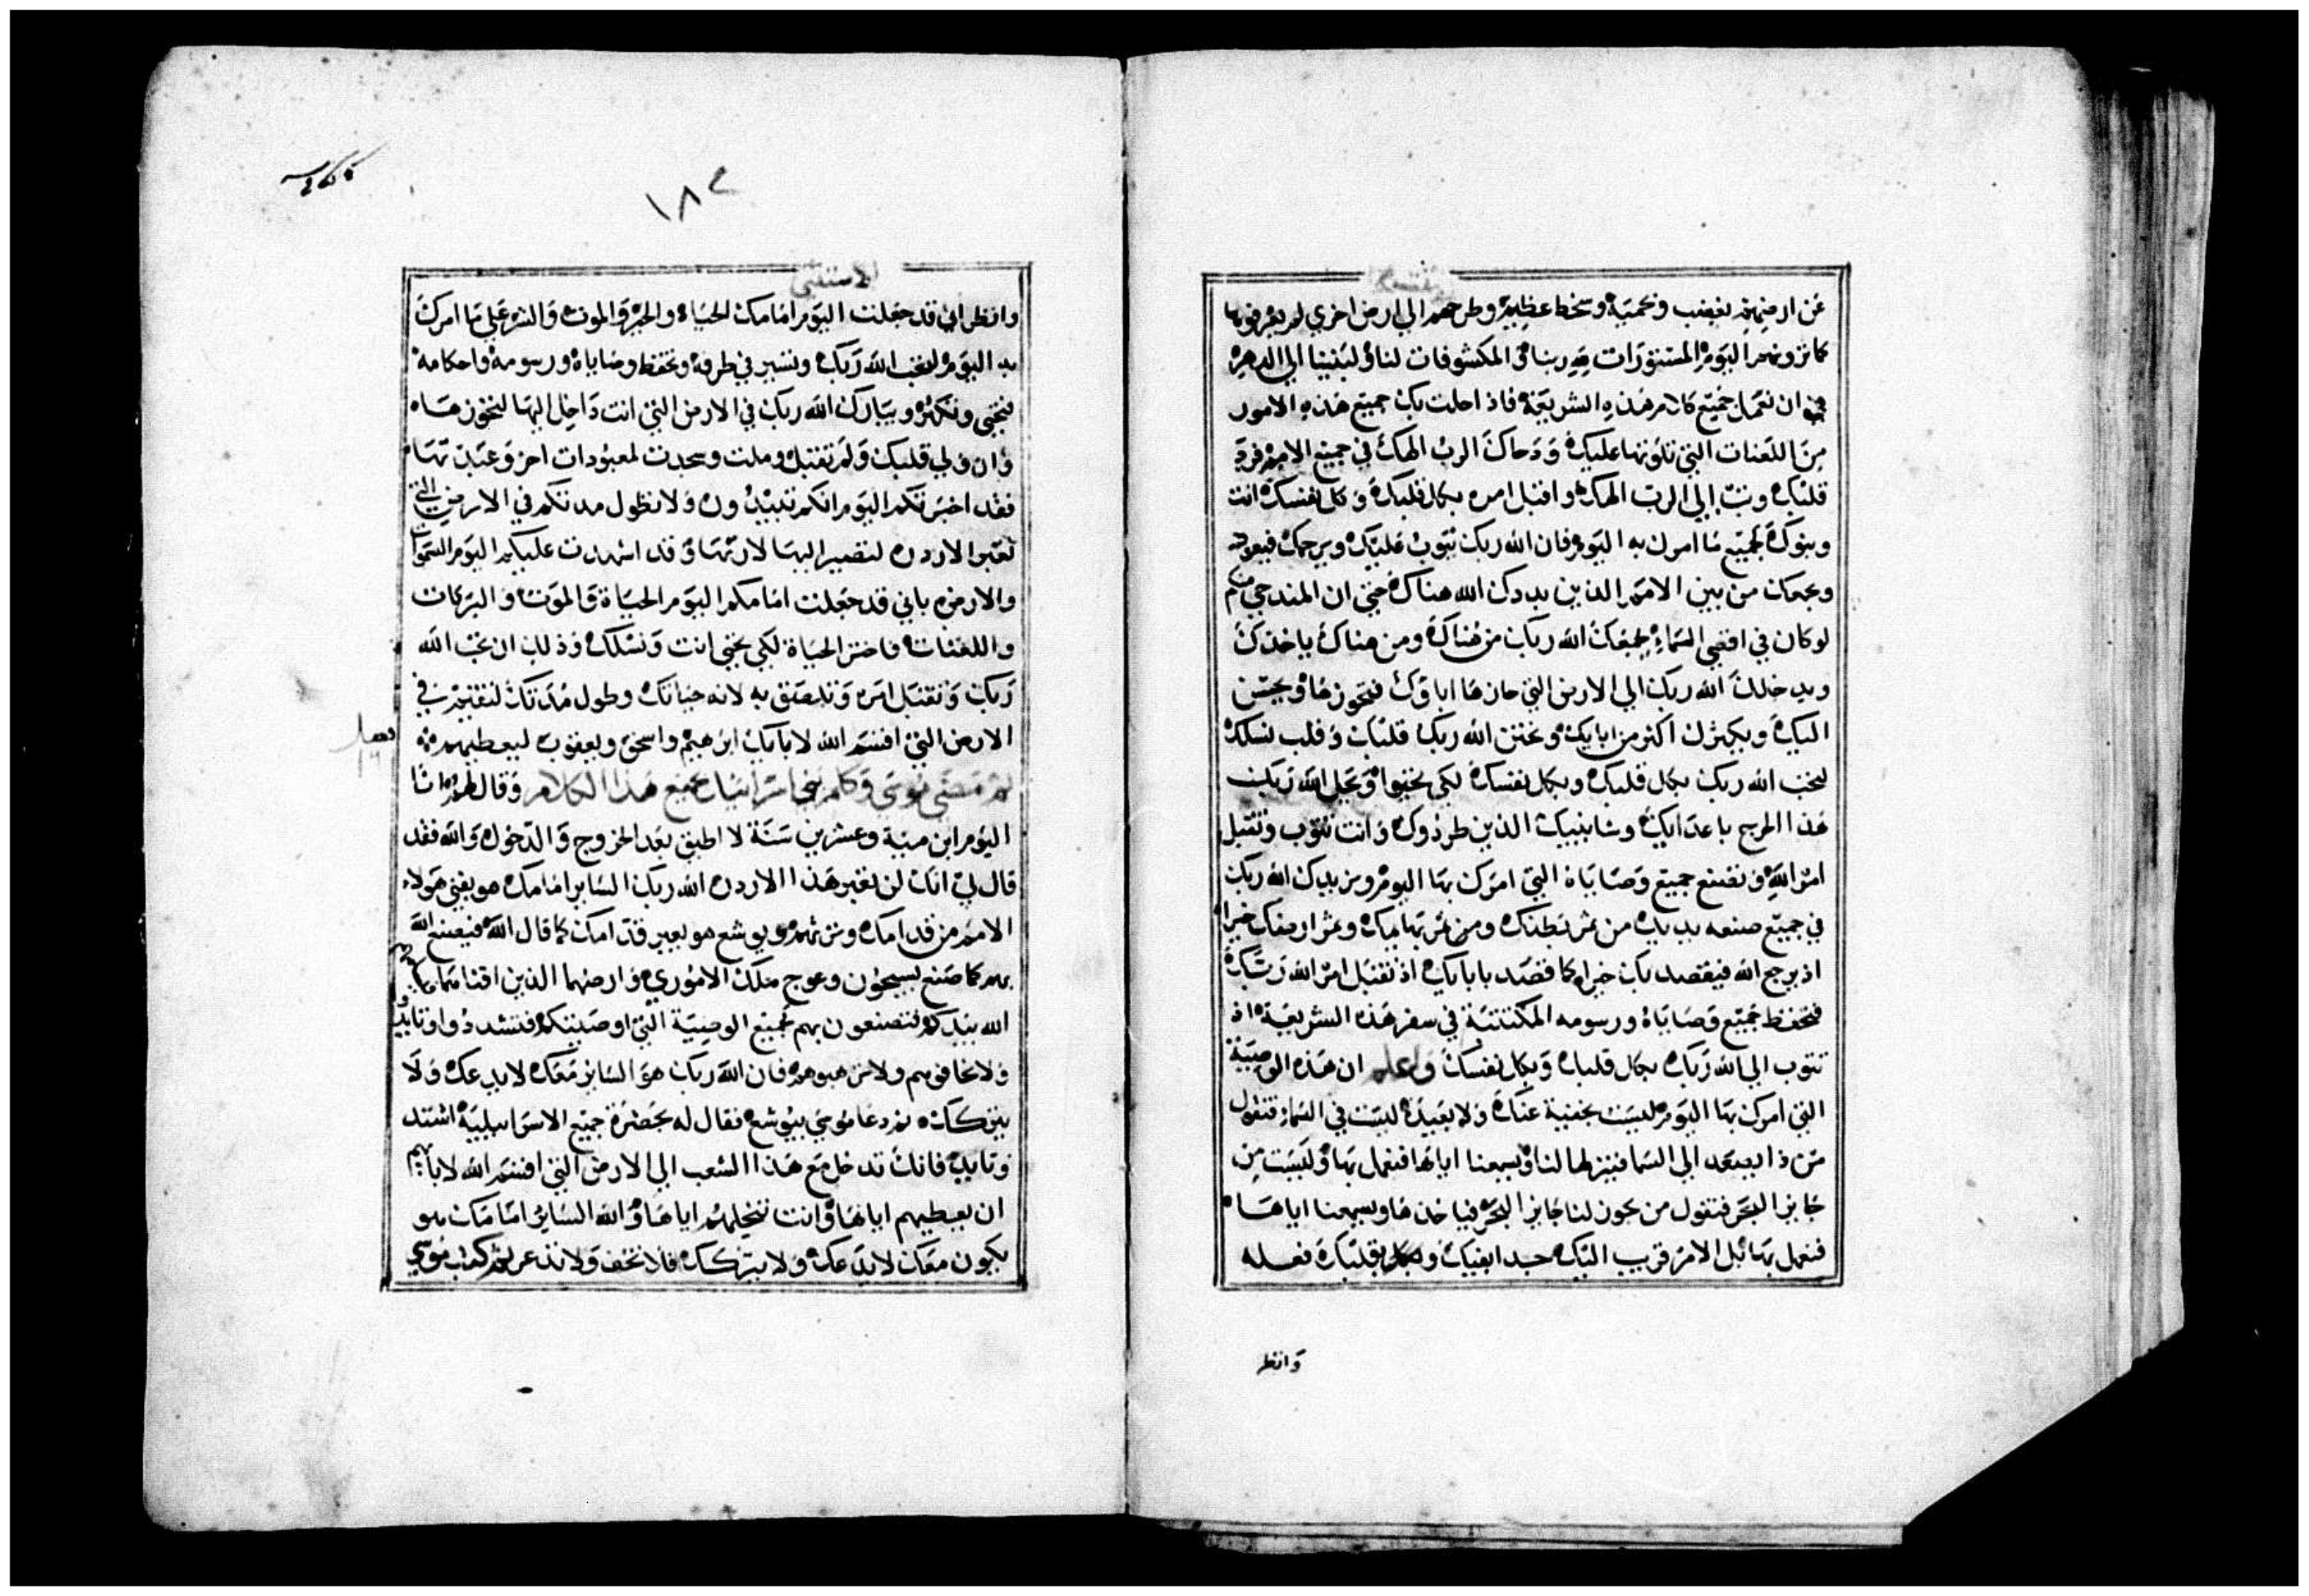 عن ارضهم بغضب وبحمية وسخط عظيم وطرحهم الي ارض اخري لم يعرفوها
كما ترونهم اليوم المستورات لله ربنا والمكشوفات لنا ولبنينا الي الدهر
ان نعمل جميع كلام هذه الشريعة فاذا حلت بك جميع هذه الامور
من اللعنات التي تلوتها عليك ودحاك الرب الهك في جميع الامم فرد
قلبك وتب الي الرب الهك واقبل امره بكل قلبك وكل نفسك انت
وبنوك لجميع ما امرك به اليوم فان الله ربك يتوب عليك ويرحمك فيعود
ويجمعك من بين الامم الذين بددك الله هناك حتي ان المندحي منكم
لو كان في اقصي السماء ليجمعك الله ربك من هناك ومن هناك ياخذك
ويدخلك الله ربك الي الارض التي حازها اباؤك فتحوزها ويحسن
اليك ويكثرك اكثر من ابايك ويختن الله ربك قلبك وقلب نسلك
لتحب الله ربك بكل قلبك وبكل نفسك لكي تحيوا ويحل الله ربك
هذا الحرج باعدايك وشانييك الذين طردوك وانت تتوب وتقبل
امر الله وتصنع جميع وصاياه التي امرك بها اليوم ويزيدك الله ربك
في جميع صنعه يديك من ثمر بطنك ومن ثمر بهايمك وثمر ارضك خيرا
اذ يرجع الله فيقصد بك خيرا كما قصد بابايك اذ تقبل امر الله ربك
فتحفظ جميع وصاياه ورسومه المكتتبة في سفر هذه الشريعة اذ
تتوب الي الله ربك بكل قلبك وبكل نفسك واعلم ان هذه الوصية
التي امرك بها اليوم ليست بخفية عنك ولا بعيدة ليست في السماء فتقول
من ذا يصعد الي السما فينزلها لنا ويسمعنا اياها فنعمل بها وليست من
جايز البحر فتقول من يكون لنا جايز البحر فياخذها ويسمعنا اياها
فنعمل بها بل الامر قريب اليك جدا بفيك وبقلبك فعله
وانظر
١٨٢
الاستثني
وانظر اني قد جعلت اليوم امامك الحياه والخير والموت والشر علي ما امرك
به اليوم لتحب الله ربك وتسير في طرقه وتحفظ وصاياه ورسومه واحكامه
فتحيي وتكثر ويبارك الله ربك في الارض التي انت داخل اليها لتحوزها
وان ولي قلبك ولم تقبل وملت وسجدت لمعبودات اخر وعبدتها
فقد اخبرتكم اليوم انكم تبيدون ولا تطول مدتكم في الارض التي
تعبر الاردن لتصير اليها لارثها وقد اشهدت عليكم اليوم السموات
والارض باني قد جعلت امامكم اليوم الحياة والموت والبركات
واللعنات فاختر الحياة لكي تحيي انت ونسلك وذلك ان تحب الله
ربك وتقبل امره وتلصق به لانه حياتك وطول مدتك لتقيم في
الارض التي اقسم الله لابايك ابرهيم واسحق ويعقوب ليعطيهم
ثم مضي موسي وكلم بني اسرائيل جميع هذا الكلام وقال لهم انا
اليوم ابن مية وعشرين سنة لا اطيق بعد الخروج والدخول والله فقد
قال لي انك لن تعبر هذا الاردن الله ربك الساير امامك هو يفني هولاء
الامم من قدامك وترثهم ويوشع هو يعبر قدامك كما قال الله فيصنع الله
بهم كما صنع بسيحون وعوج ملك الاموري وارضهما الذين افناهما
الله بيدكم فتصنعون بهم لجميع الوصية التي اوصيتكم فتشددوا وتايدوا
ولا تخافوهم ولا ترهبوهم فان الله ربك هو الساير معك لا يدعك ولا
يتركك ثم دعا موسي بيوشع فقال له بحضرة جميع الاسراييلية اشتد
وتايد فانك تدخل مع هذا الشعب الي الارض التي اقسم الله لابايهم
ان يعطيهم اياها وانت تنحلهم اياها والله الساير امامك هو
يكون معك لا يدعك ولا يتركك فلا تخف ولا تذعر ثم كتب موسي
فصل